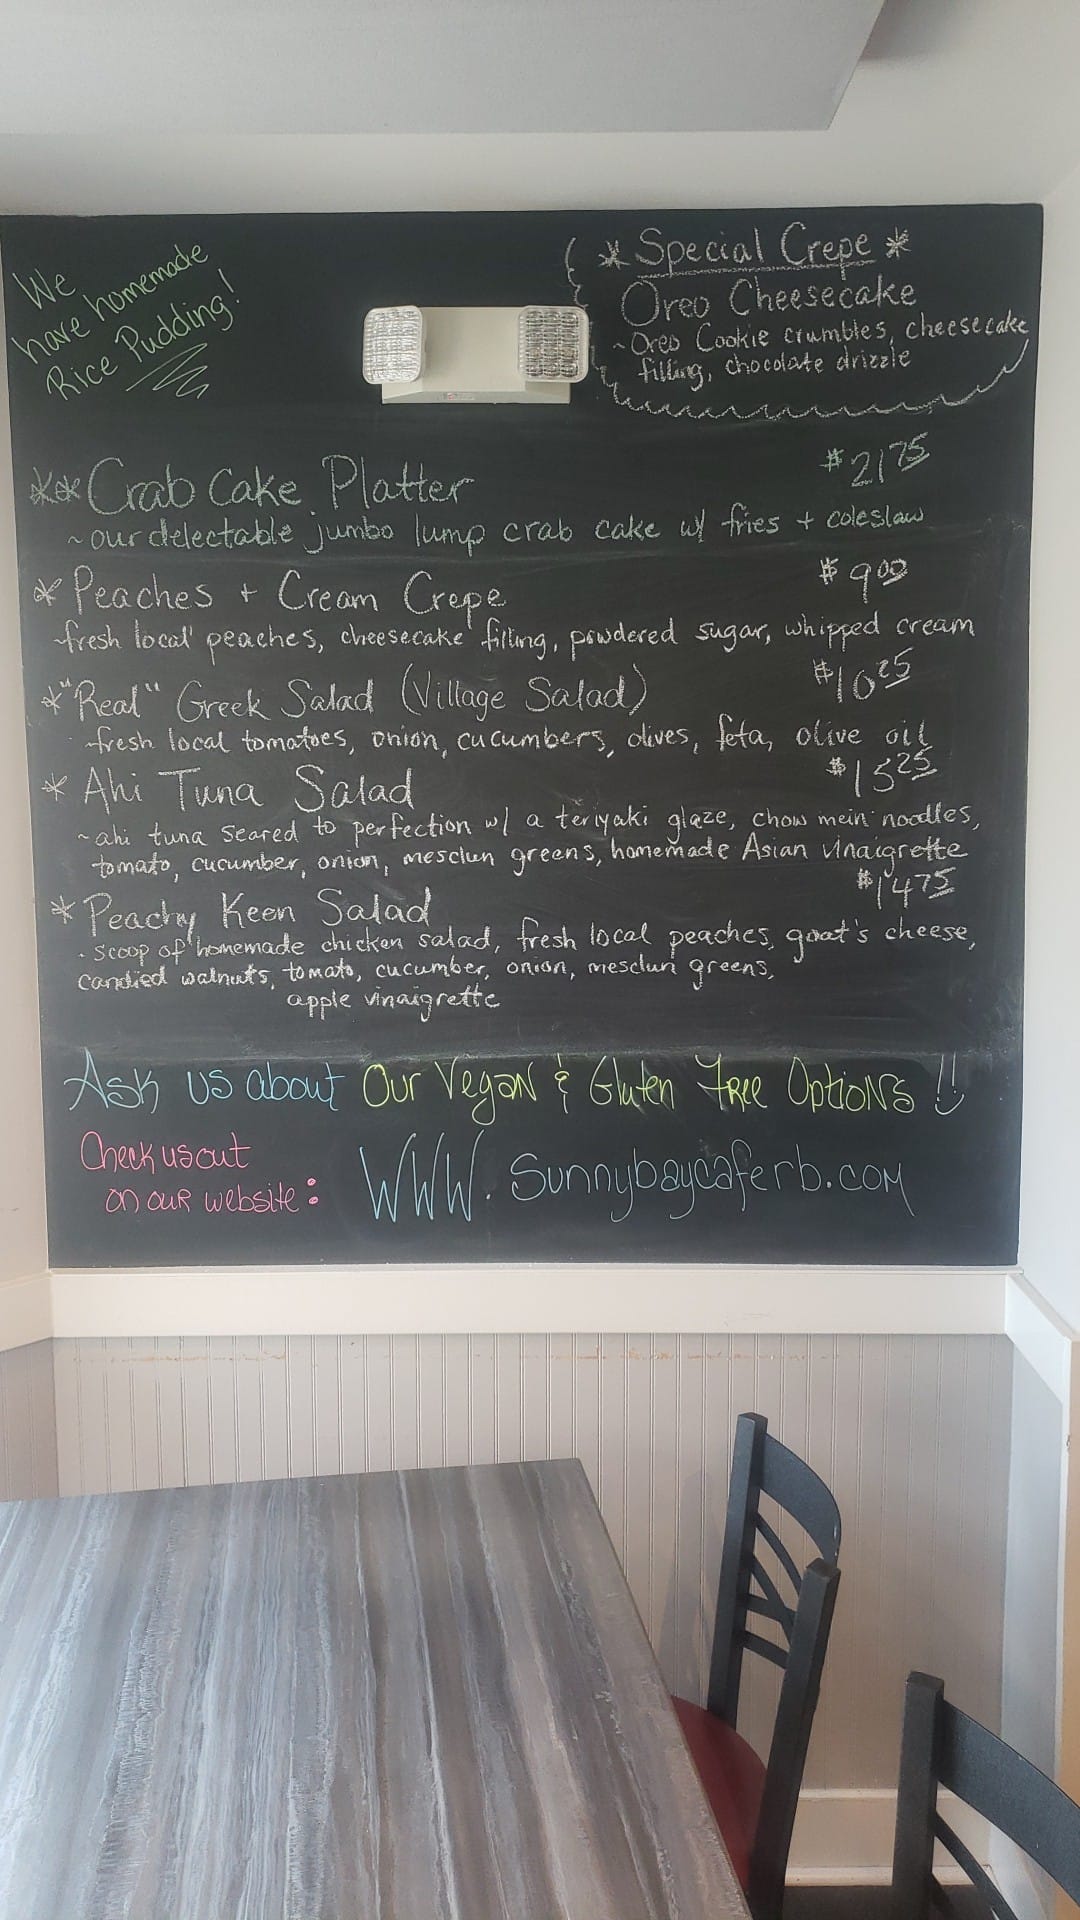 We
have homemade
Rice Pudding!
* Special Crepe *
Oreo Cheesecake
~Oreo Cookie crumbles, cheesecake
filling, chocolate drizzle
** Crab Cake Platter $21 75
~our delectable jumbo lump crab cake w/ fries + coleslaw
* Peaches + Cream Crepe $9 00
~fresh local peaches, cheesecake filling, powdered sugar, whipped cream
* "Real" Greek Salad (Village Salad) $10 25
~fresh local tomatoes, onion, cucumbers, olives, feta, olive oil
* Ahi Tuna Salad $15 25
~ahi tuna seared to perfection w/ a teriyaki glaze, chow mein noodles,
tomato, cucumber, onion, mesclun greens, homemade Asian vinaigrette
* Peachy Keen Salad $14 75
. scoop of homemade chicken salad, fresh local peaches, goat's cheese,
candied walnuts, tomato, cucumber, onion, mesclun greens,
apple vinaigrette
Ask us about Our Vegan & Gluten Free Options!!
Check us out
on our website:
WWW.Sunnybaycaferb.com